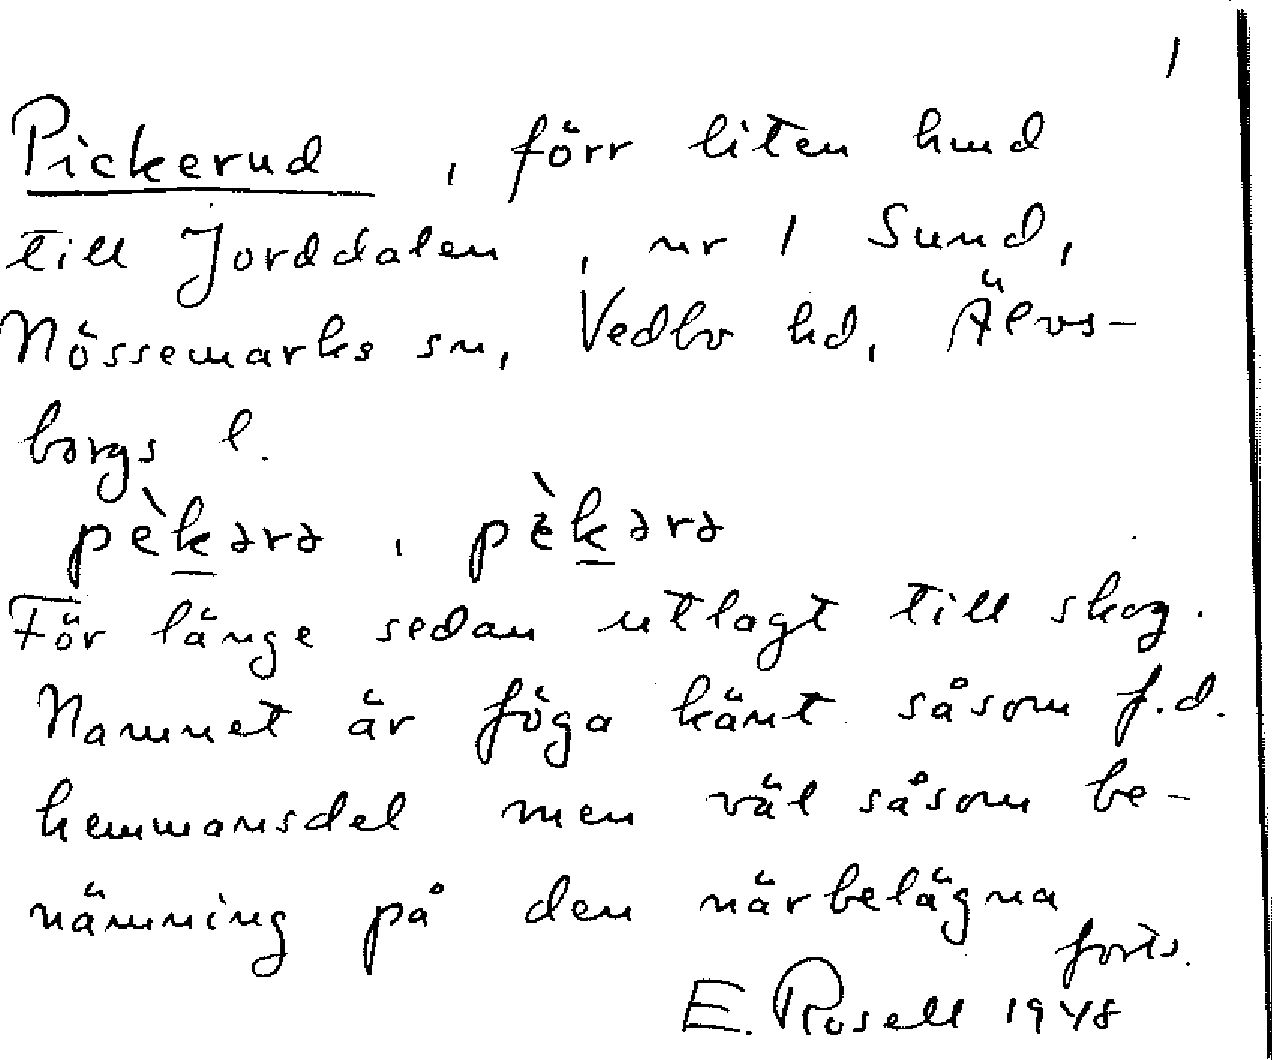 1
Pickerud, förr liten hmd
till Jorddalen, nr 1 Sund,
Nössemarks sn, Vedbo hd, Älvs-
borgs l.
pèkərə, pèkərə
För länge sedan utlagt till skog.
Namnet är föga känt såsom f.d.
hemmansdel men väl såsom be-
nämning på den närbelägna
forts.
E. Rosell 1948